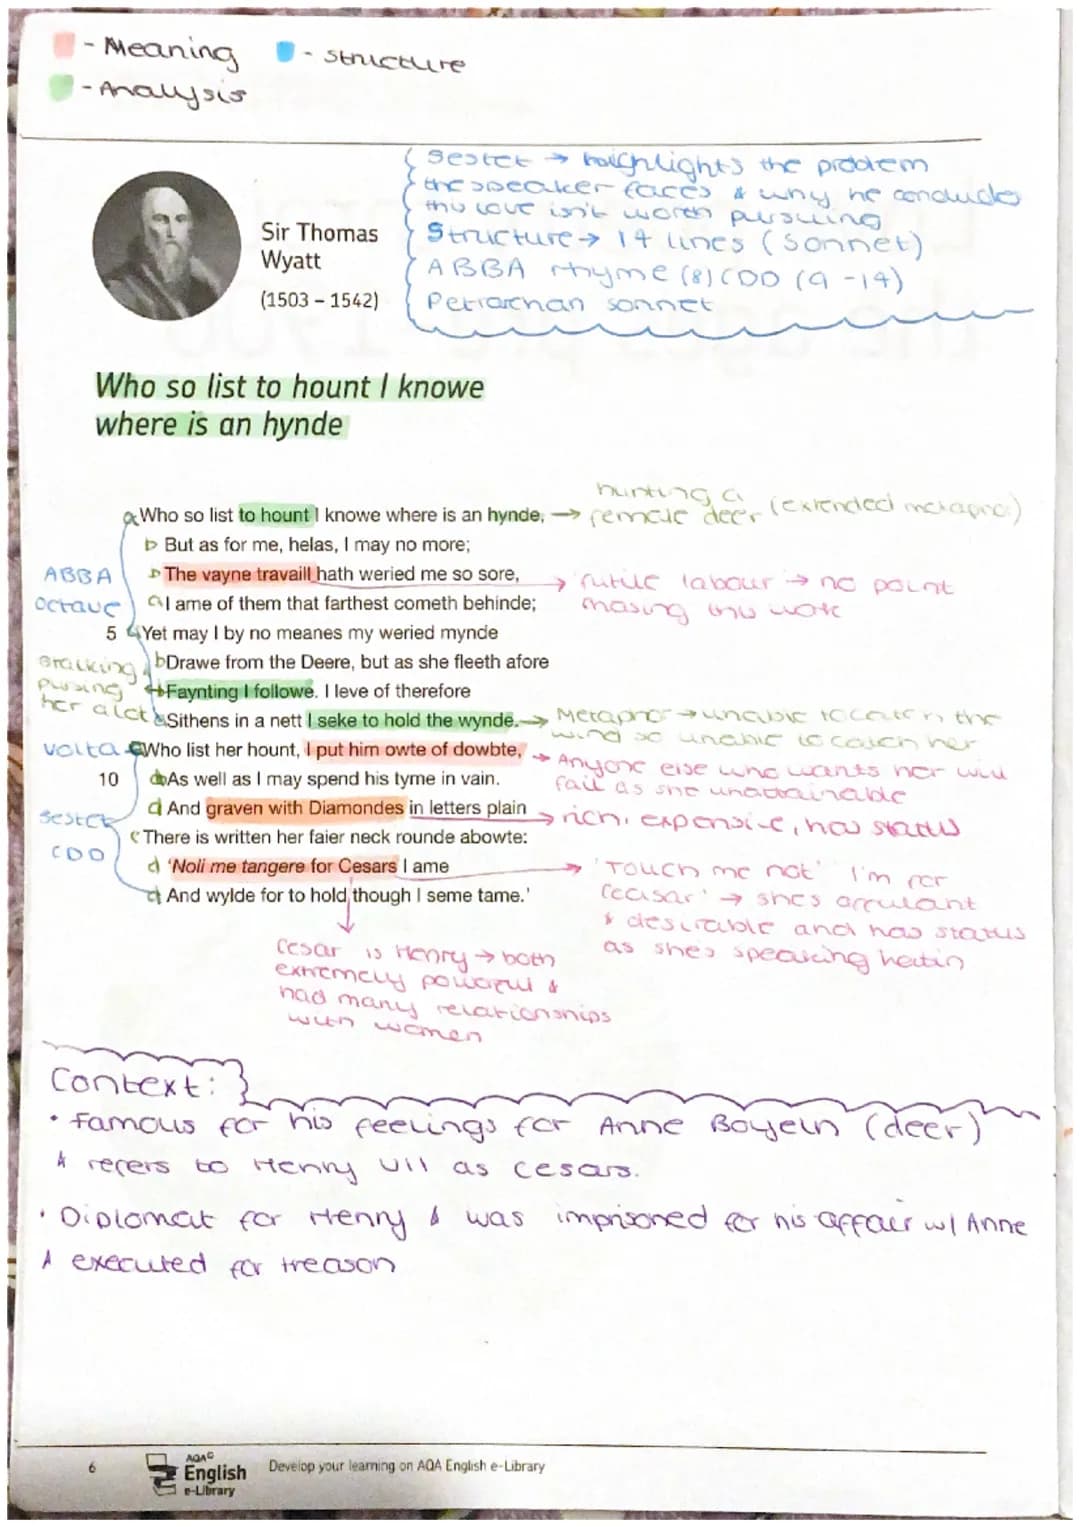 - Meaning
- Structure
- Analysis
Sestet → highlights the problem
the speaker faces & why he concludes
this love isn't worth pursuing
Structure → 14 lines (sonnet)
ABBA rhyme (8) CDD (9-14)
Petrarchan sonnet
Sir Thomas
Wyatt
(1503 – 1542)
Who so list to hount I knowe
where is an hynde
hunting a
female deer (extended metaphor)
a Who so list to hount I knowe where is an hynde, →
b But as for me, helas, I may no more;
ABBA
octave
b The vayne travaill hath weried me so sore,
→ 'futile labour → no point
chasing this
a I ame of them that farthest cometh behinde;
5 a Yet may I by no meanes my weried mynde
b Drawe from the Deere, but as she fleeth afore
stalking,
pursing
her alot
b Faynting I followe. I leve of therefore
a Sithens in a nett I seke to hold the wynde. →
Metaphor → unable to catch the
wind so unable to catch her
volta
c Who list her hount, I put him owte of dowbte,
→ Anyone else who wants her will
fail as she unattainable
10 d As well as I may spend his tyme in vain.
d And graven with Diamondes in letters plain
→ rich, expensive, has status
sestet
CDD
c There is written her faier neck rounde abowte:
d 'Noli me tangere for Cesars I ame
→ 'Touch me not' I'm for
→ shes
& desirable and has status
as shes speaking
d And wylde for to hold though I seme tame.'
Cesar is Henry → both
extremely powerful &
had many relationships
with women
Context:
• famous for his feelings for Anne Boyeln (deer)
& refers to Henry VII as cesars.
• Diplomat for Henry & was imprisoned for his affair w/ Anne
& executed for treason
6
AQA
English
e-Library
Develop your learning on AQA English e-Library